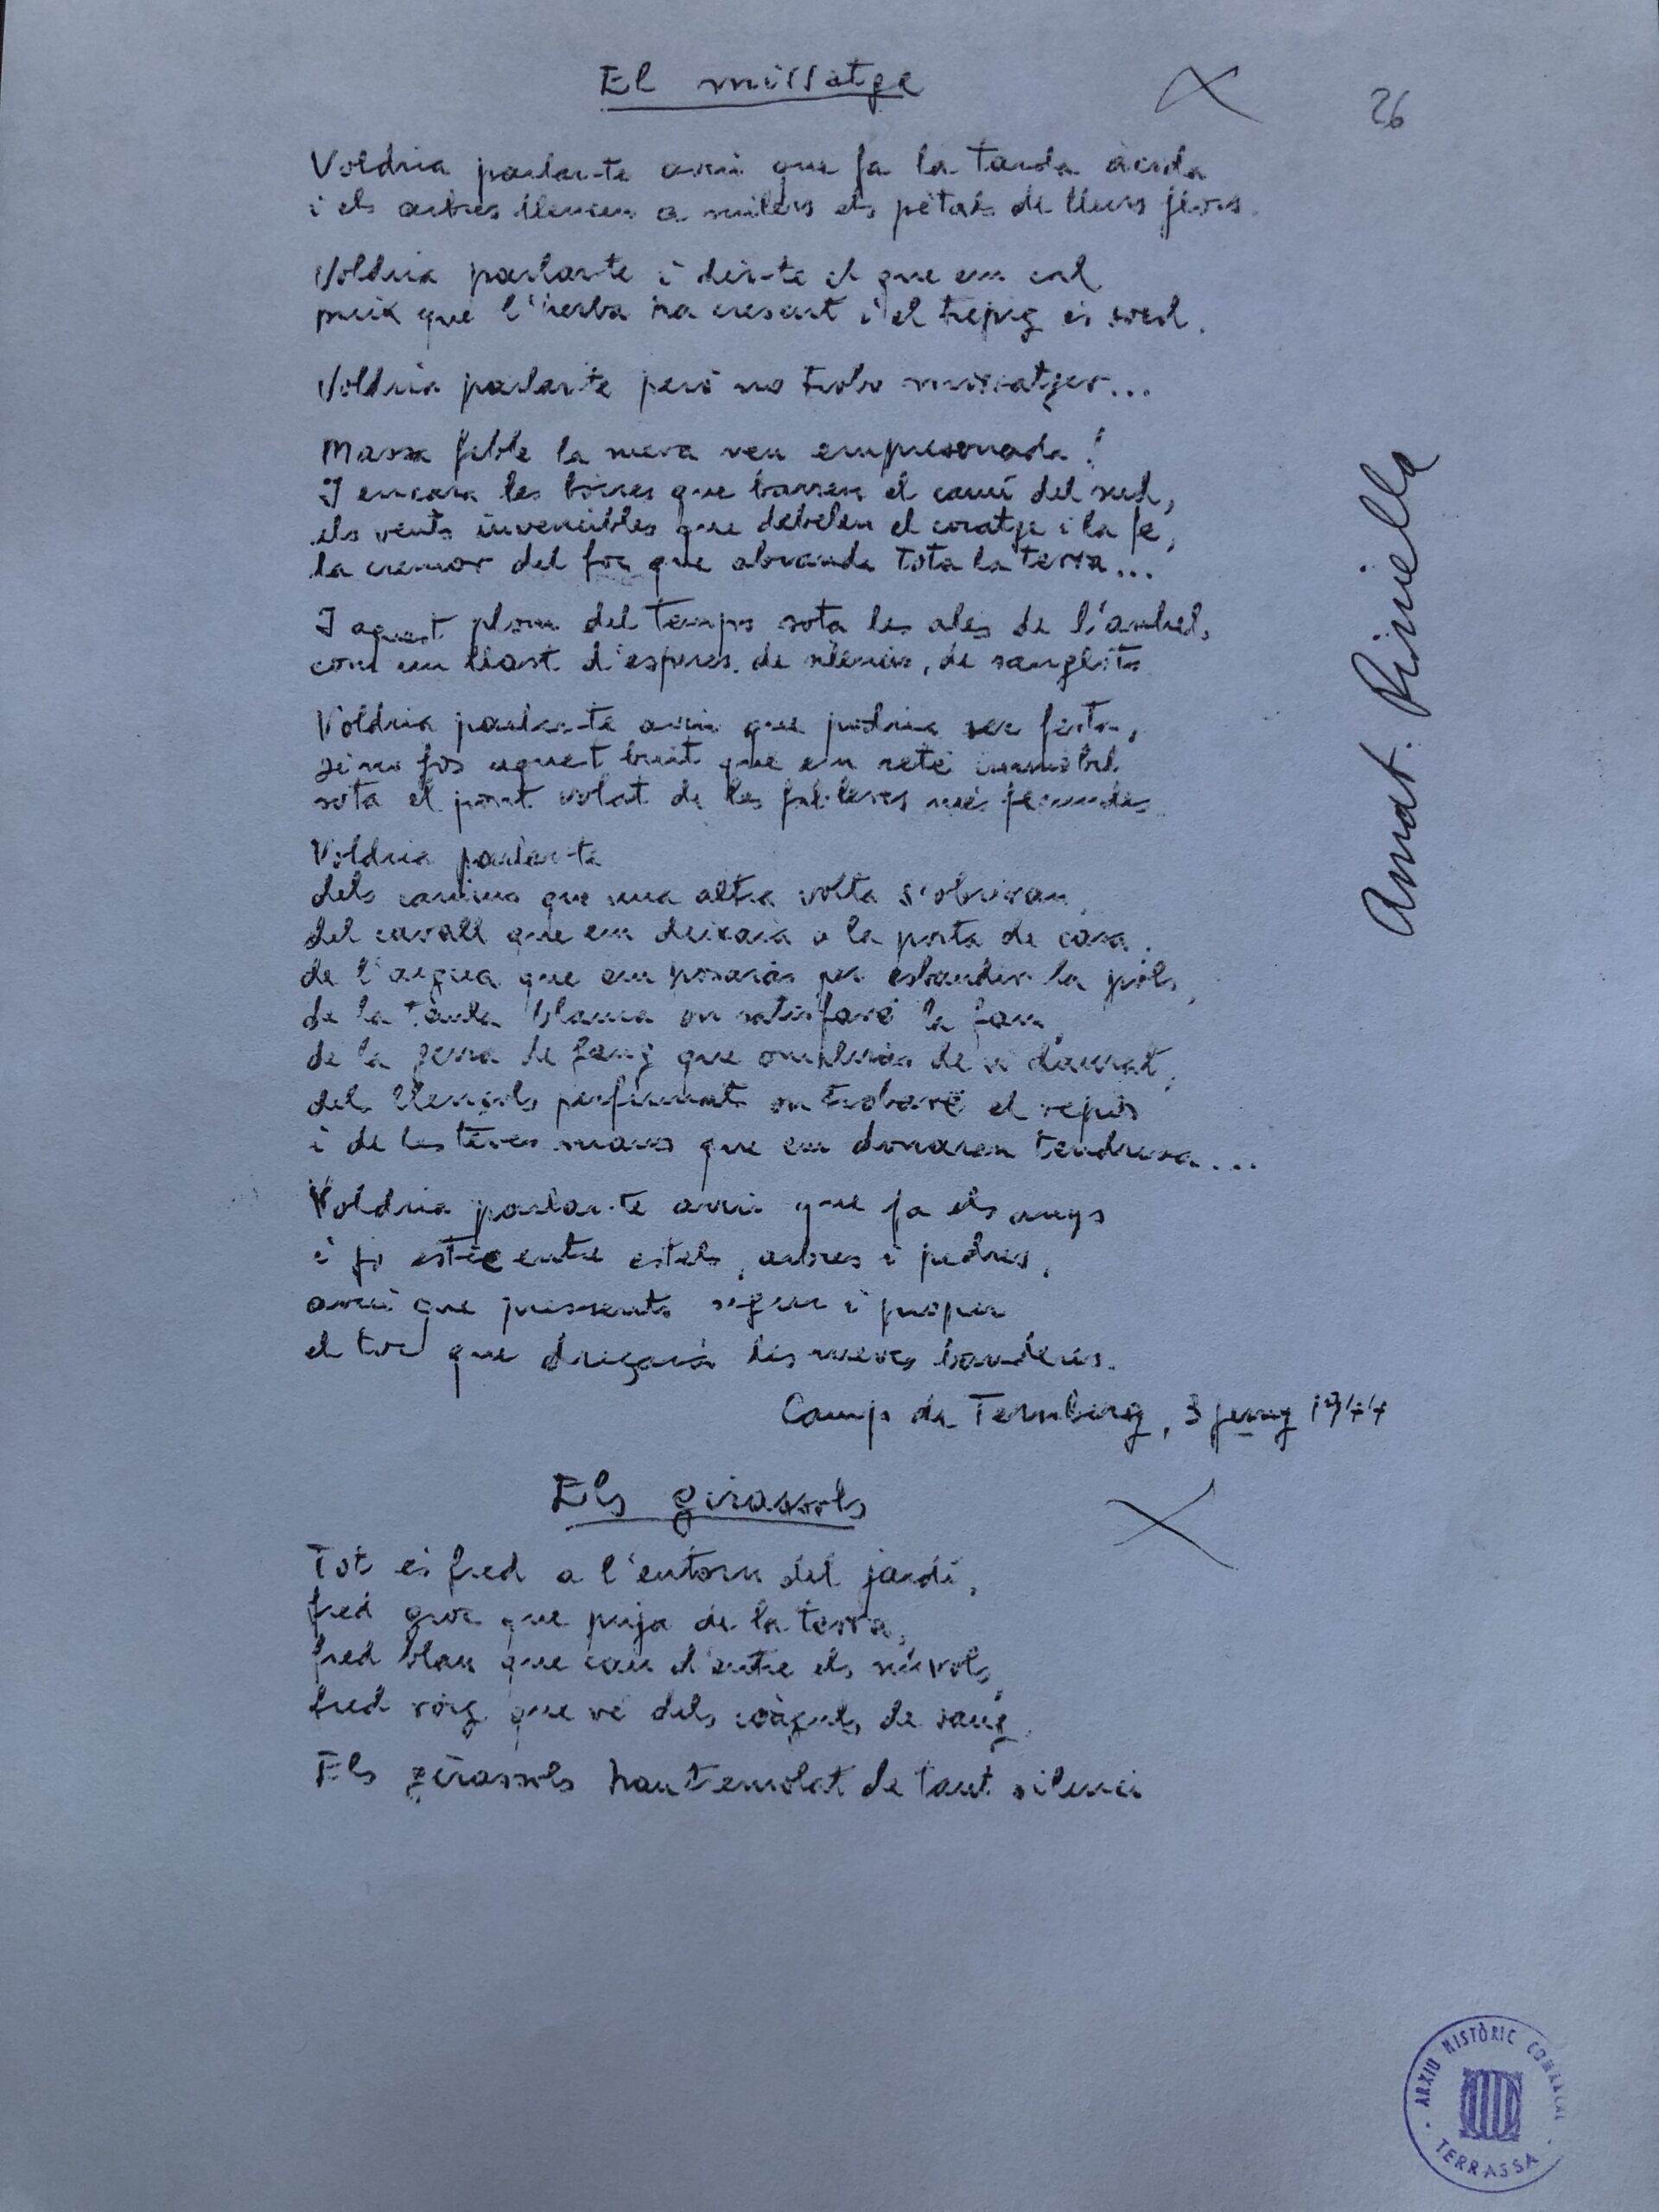 El missatge
26
Voldria parlar-te avui que fa la tarda àcida
i els arbres llencen a milers els pètals de llurs flors.
Voldria parlar-te i dir-te el que em cal
puix que l'herba ha crescut i el trepig és sord.
Voldria parlar-te però no trobo missatger...
Massa feble la meva veu empresonada!
I encara les boires que barren el camí del sud,
els vents invencibles que debelen el coratge i la fe,
la cremor del foc que abranda tota la terra...
I aquest plom del temps sota les ales de l'anhel,
com un llast d'esperes, de silencis, de sanglots.
Voldria parlar-te avui que podria ser festa,
si no fos aquest buit que em reté immòbil
sota el pont volat de les fal·leres més fecundes.
Voldria parlar-te
dels camins que una altra volta s'obriran,
del cavall que em deixarà a la porta de casa,
de l'aigua que em posaràs per esbandir la pols,
de la taula blanca on satisfaré la fam,
de la gerra de fang que ompliràs de vi daurat,
dels llençols perfumats on trobaré el repòs
i de les teves mans que em donaran tendresa....
Voldria parlar-te avui que fa els anys
i jo estic entre estels, arbres i pedres,
avui que pressents segur i proper
el toc que dreçarà les meves banderes.
Camp de Ternberg, 3 juny 1944
Amat. Piniella
Els girassols
Tot és fred a l'entorn del jardí,
fred groc que puja de la terra,
fred blau que cau d'entre els núvols,
fred roig que ve dels coàguls de sang.
Els girassols han tremolat de tant silenci
ARXIU HISTÒRIC COMARCAL
TERRASSA